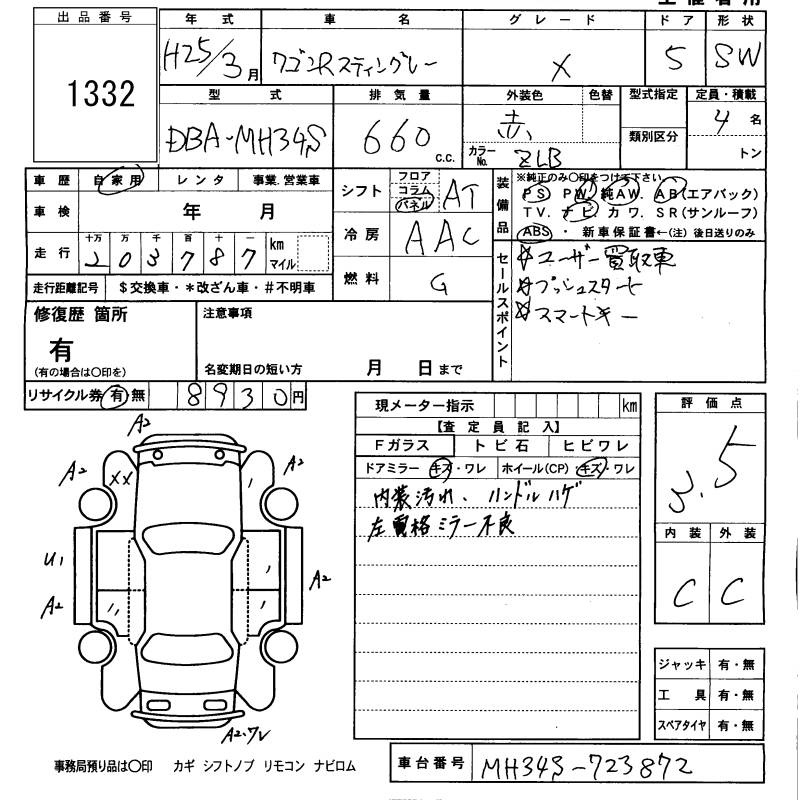 出品番号
1332
年式 車名 グレード ドア 形状
H25/3月 ワゴンRスティングレー X 5 SW
型式 排気量 外装色 色替 型式指定 定員・積載
DBA-MH34S 660 c.c. 赤 類別区分 4名
カラーNo. ZLB トン
車歴 自家用 レンタ 事業.営業車
車検 年 月
走行 十万 万 千 百 十 一 km マイル
2 0 3 7 8 7
走行距離記号 $交換車・*改ざん車・#不明車
シフト フロア コラム パネル AT
冷房 AAC
燃料 G
装備品
※純正のみ○印をつけて下さい
PS PW 純AW. AB(エアバック)
TV. ナビ. カワ. SR(サンルーフ)
ABS・新車保証書←(注)後日送りのみ
セールスポイント
☆ユーザー買取車
☆プッシュスタート
☆スマートキー
修復歴 箇所
有
(有の場合は○印を)
注意事項
名変期日の短い方 月 日まで
リサイクル券 有 無 8930円
現メーター指示 km
【査定員記入】
Fガラス トビ石 ヒビワレ
ドアミラー キズ・ワレ ホイール(CP) キズ・ワレ
内装汚れ、ハンドルハゲ
左電格ミラー不良
評価点
3.5
内装 外装
C C
A2
A2 XX A2
U1
A2 A2
A2・ワレ
ジャッキ 有・無
工具 有・無
スペアタイヤ 有・無
事務局預り品は○印 カギ シフトノブ リモコン ナビロム
車台番号 MH34S-723872